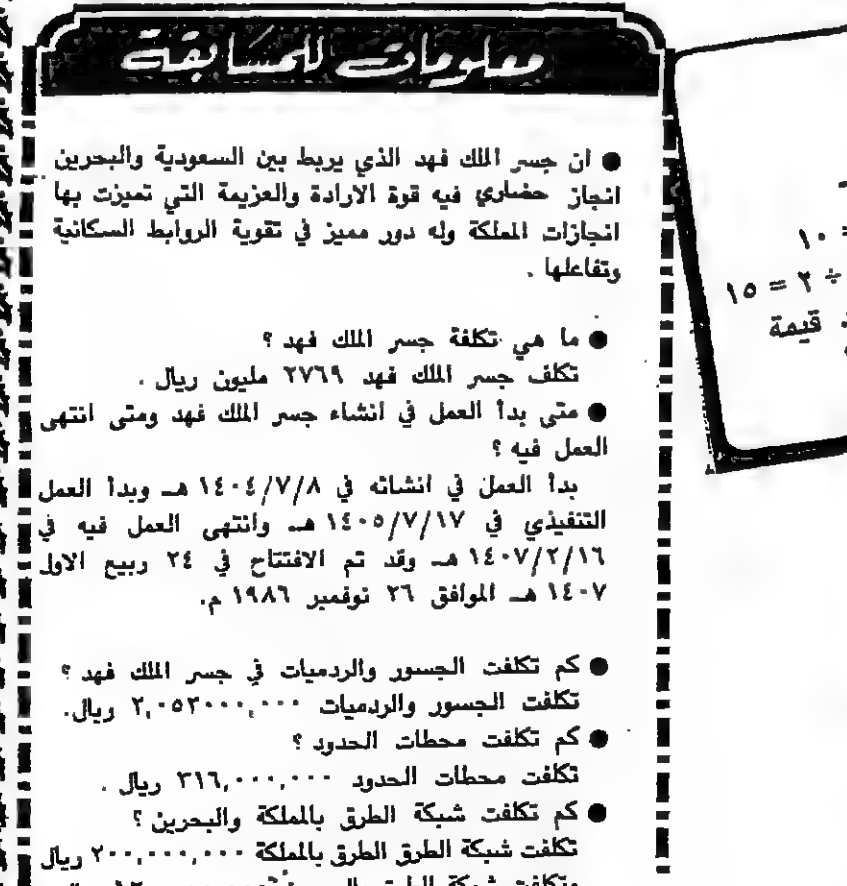 معلومات للمسابقة
● ان جسر الملك فهد الذي يربط بين السعودية والبحرين
انجاز حضاري فيه قوة الارادة والعزيمة التي تميزت بها
انجازات المملكة وله دور مميز في تقوية الروابط السكانية
وتفاعلها .
● ما هي تكلفة جسر الملك فهد ؟
تكلف جسر الملك فهد ٢٧٦٩ مليون ريال .
● متى بدأ العمل في انشاء جسر الملك فهد ومتى انتهى
العمل فيه ؟
بدأ العمل في انشائه في ١٤٠٤/٧/٨ هـ وبدأ العمل
التنفيذي في ١٤٠٥/٧/١٧ هـ وانتهى العمل فيه في
١٤٠٧/٢/١٦ هـ وقد تم الافتتاح في ٢٤ ربيع الاول
١٤٠٧ هـ الموافق ٢٦ نوفمبر ١٩٨٦ م.
● كم تكلفت الجسور والردميات في جسر الملك فهد ؟
تكلفت الجسور والردميات ٢,٠٥٣٠٠٠,٠٠٠ ريال.
● كم تكلفت محطات الحدود ؟
تكلفت محطات الحدود ٣١٦,٠٠٠,٠٠٠ ريال .
● كم تكلفت شبكة الطرق بالمملكة والبحرين ؟
تكلفت شبكة الطرق الطرق بالمملكة ٢٠٠,٠٠٠,٠٠٠ ريال
وتكلفت شبكة الطرق
= ١٠
÷ ٢ = ١٥
قيمة